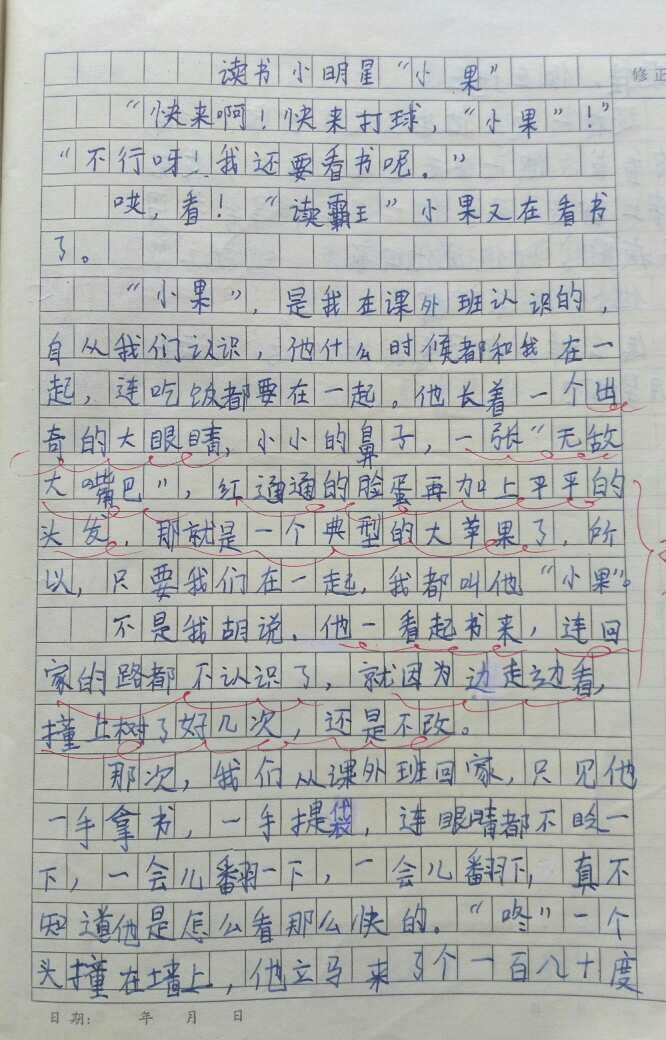 修正
读书小明星“小果”
“快来啊！快来打球，“小果”！”
“不行呀！我还要看书呢。”
哎，看！“读霸王”小果又在看书
了。
“小果”，是我在课外班认识的，
自从我们认识，他什么时候都和我在一
起，连吃饭都要在一起。他长着一个出
奇的大眼睛，小小的鼻子，一张“无敌
大嘴巴”，红通通的脸蛋再加上平平的
头发，那就是一个典型的大苹果了，所
以，只要我们在一起，我都叫他“小果”。
不是我胡说，他一看起书来，连回
家的路都不认识了，就因为边走边看，
撞上树了好几次，还是不改。
那次，我们从课外班回家，只见他
一手拿书，一手提袋，连眼睛都不眨一
下，一会儿翻一下，一会儿翻下，真不
知道他是怎么看那么快的。“咚”一个
头撞在墙上，他立马来了个一百八十度
日期： 年 月 日